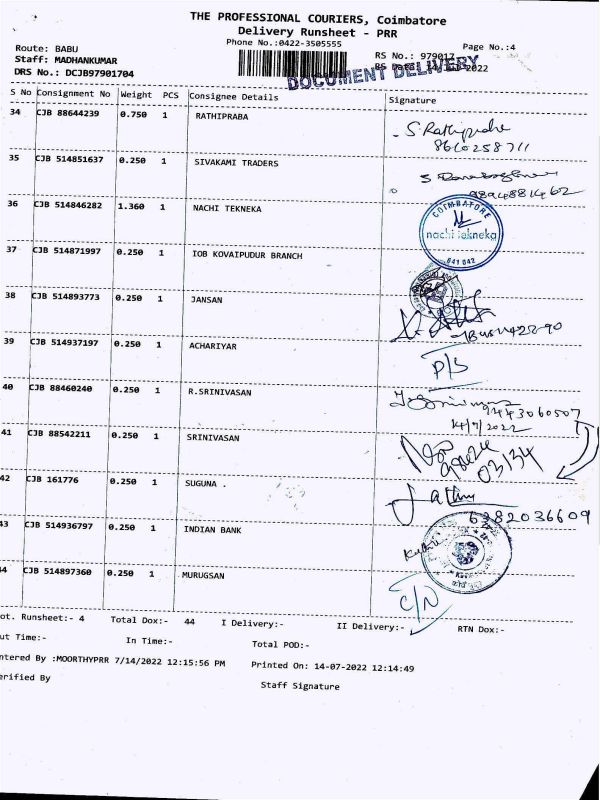 THE PROFESSIONAL COURIERS, Coimbatore
Delivery Runsheet - PRR
Phone No.:0422-3505555
Page No.:4
Route: BABU
Staff: MADHANKUMAR
DRS No.: DCJB97901704
RS No.: 979017
2022
DOCUMENT DELIVERY
S No Consignment No Weight PCS Consignee Details Signature
34 CJB 88644239 0.750 1 RATHIPRABA
S. Rathipraba
8610258711
35 CJB 514851637 0.250 1 SIVAKAMI TRADERS
9894881462
36 CJB 514846282 1.360 1 NACHI TEKNEKA
COIMBATORE
nachi tekneka
641 042
37 CJB 514871997 0.250 1 IOB KOVAIPUDUR BRANCH
38 CJB 514893773 0.250 1 JANSAN
39 CJB 514937197 0.250 1 ACHARIYAR
P/S
40 CJB 88460240 0.250 1 R.SRINIVASAN
9443060507
14/7/2022
41 CJB 88542211 0.250 1 SRINIVASAN
03134
42 CJB 161776 0.250 1 SUGUNA .
6382036609
43 CJB 514936797 0.250 1 INDIAN BANK
44 CJB 514897360 0.250 1 MURUGSAN
C/N
ot. Runsheet:- 4 Total Dox:- 44 I Delivery:- II Delivery:- RTN Dox:-
ut Time:- In Time:- Total POD:-
ntered By :MOORTHYPRR 7/14/2022 12:15:56 PM Printed On: 14-07-2022 12:14:49
erified By Staff Signature